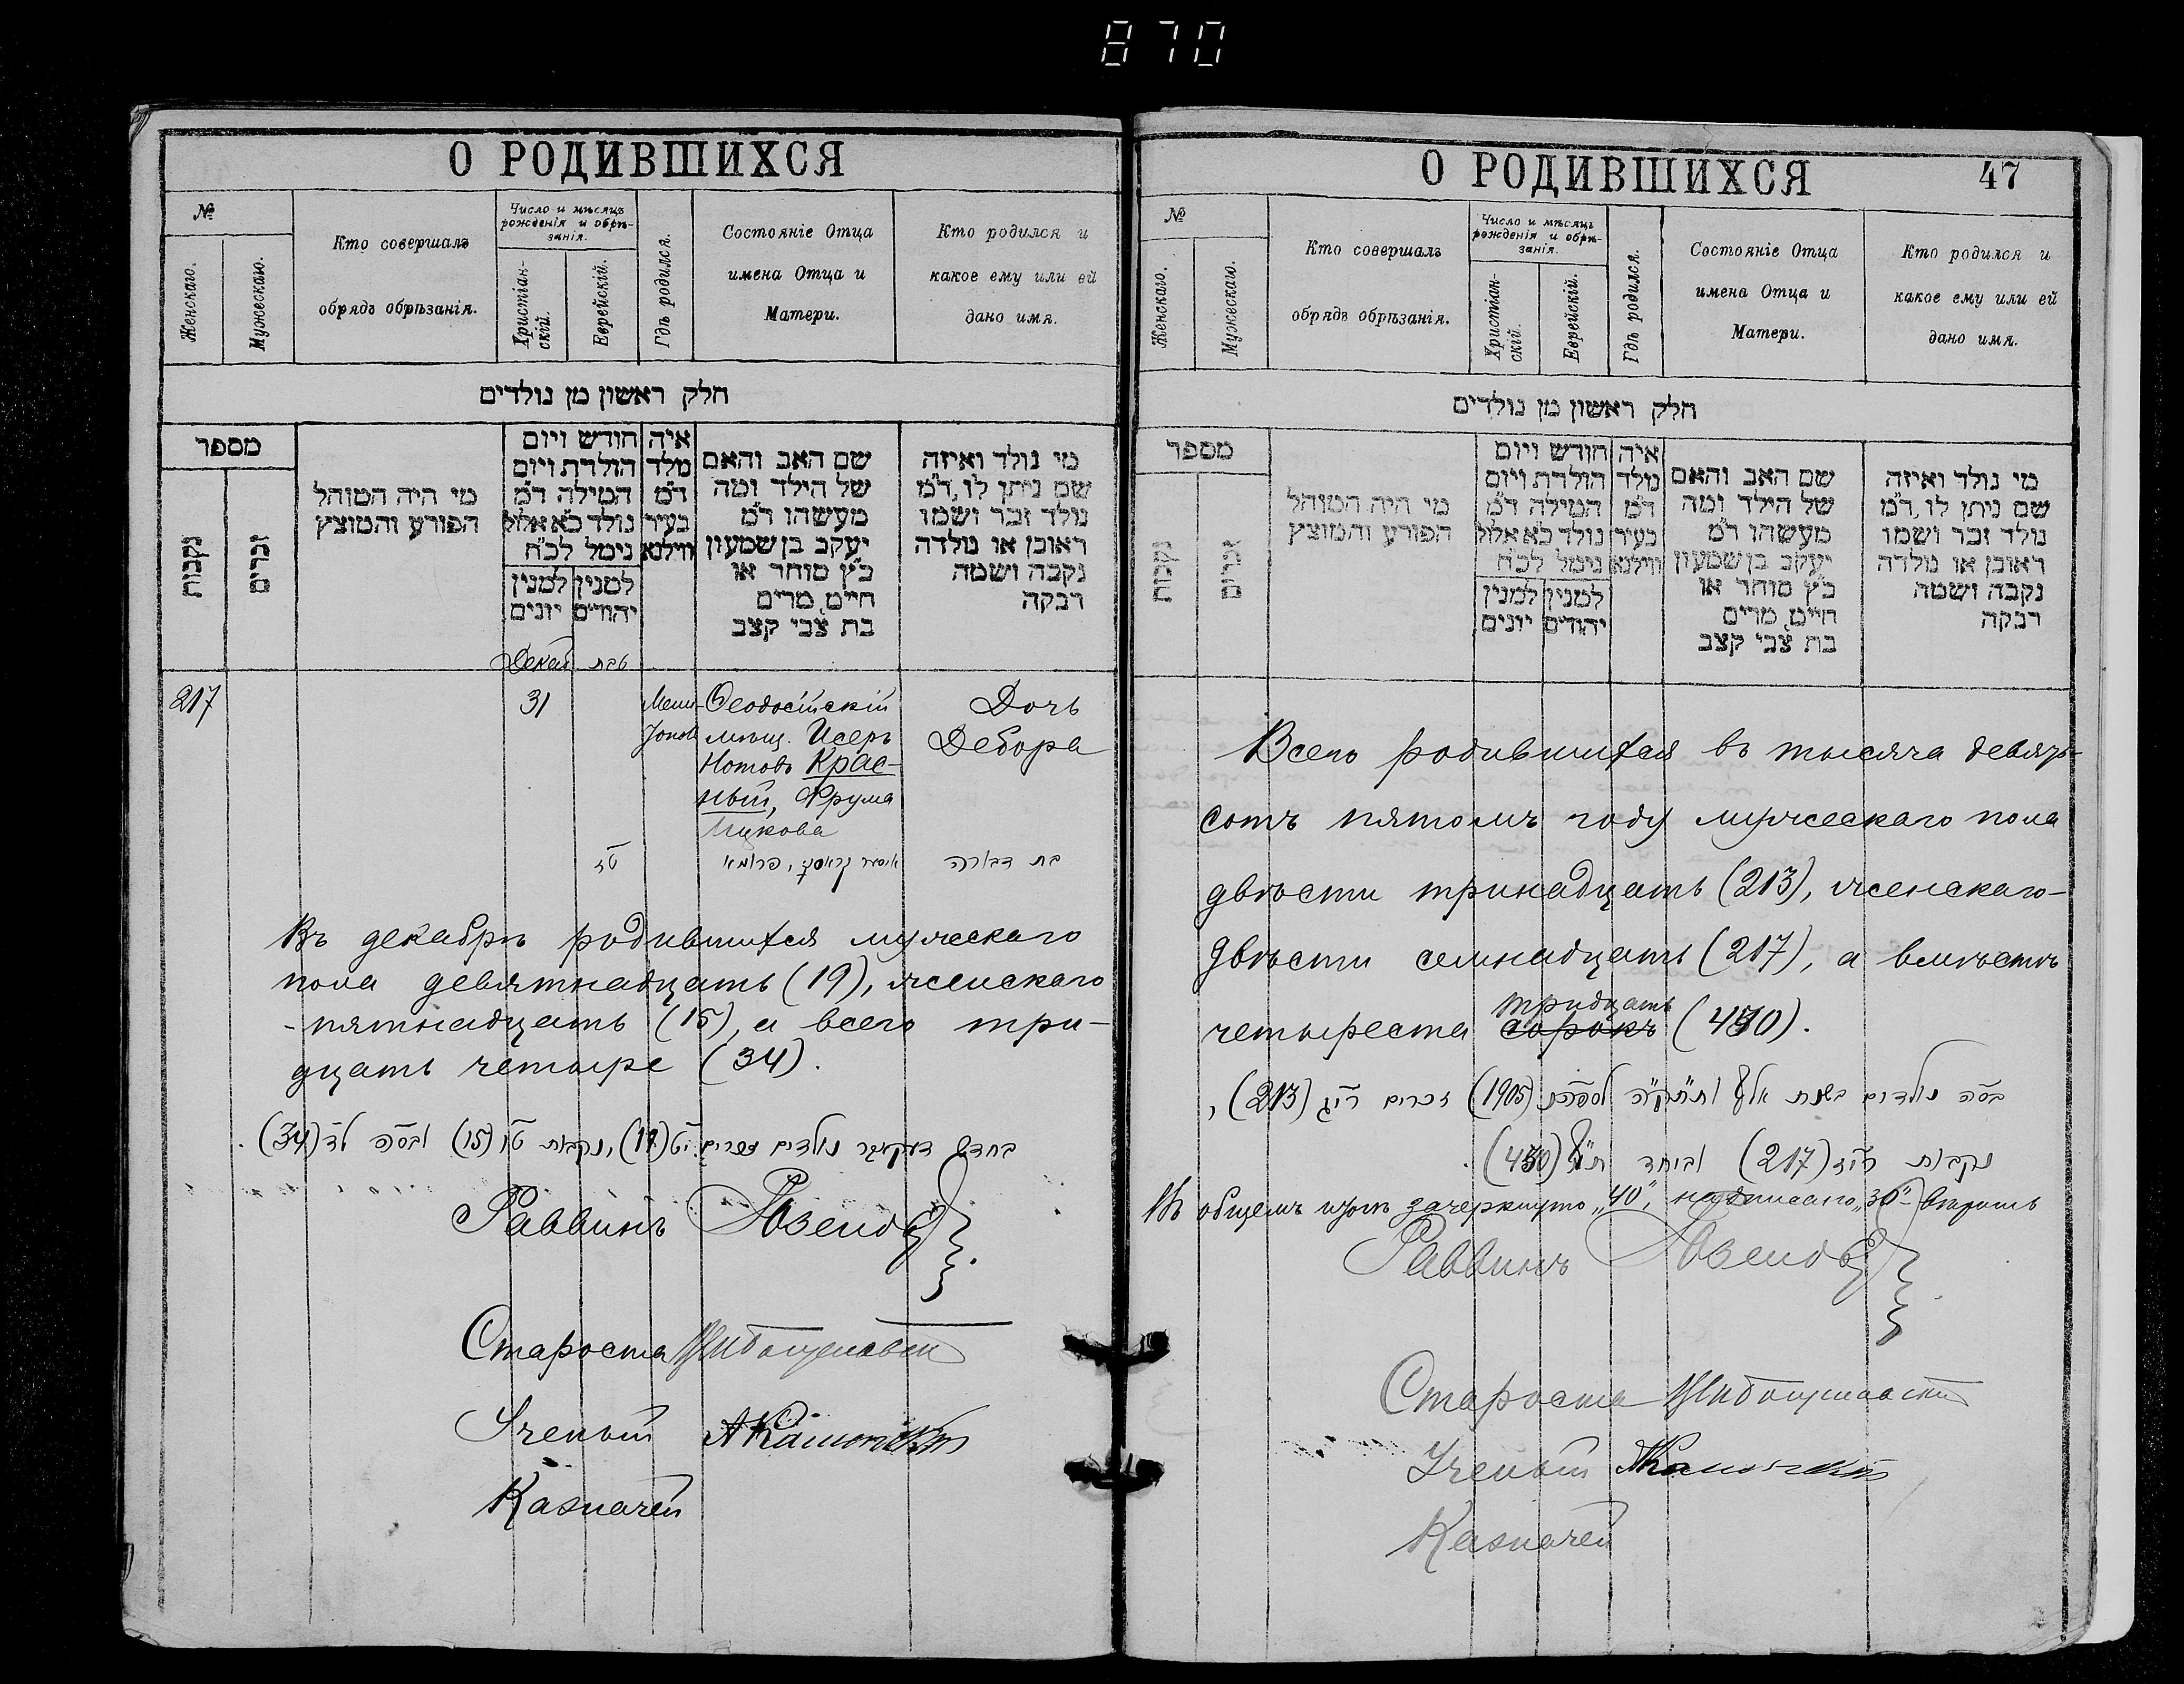 870
О РОДИВШИХСЯ
№
Женскаго.
Мужескаго.
Кто совершалъ
обрядъ обрѣзанія.
Число и мѣсяцъ
рожденія и обрѣ-
занія.
Христіан-
скій.
Еврейскій.
Гдѣ родился.
Состояніе Отца
имена Отца и
Матери.
Кто родился и
какое ему или ей
дано имя.
חלק ראשון מן נולדים
מספר
נקבות
זכרים
מי היה המוהל
הפורע והמוצץ
חודש ויום
הולדת ויום
המילה ד״מ
נולד כ״א אלול
נימל לכ״ח
למנין יהודים
למנין יונים
איה
מלד
ד״מ
בעיר
ווילנא
שם האב והאם
של הילד ומה
מעשהו ד״מ
יעקב בן שמעון
כ״ץ סוחר או
חייט, מרים
בת צבי קצב
מי נולד ואיזה
שם ניתן לו, ד״מ
נולד זכר ושמו
ראובן או נולדה
נקבה ושמה
רבקה
Декаб. טבת
217
31
Ѳеодосійскій
мѣщ. Исеръ
Нотовъ Крас-
ный, Фрума
Ицкова
Дочь
Дебора
איסר קראסני, פרומא
בת דבורה
Въ декабрѣ родившихся мужескаго
пола девятнадцать (19), женскаго
- пятнадцать (15), а всего три-
дцать четыре (34).
בחדש דעקאבר נולדים זכרים י״ט (19), נקבות ט״ו (15) ובס״ה ל״ד (34).
Раввинъ
Староста
Ученый
Казначей
О РОДИВШИХСЯ
47
№
Женскаго.
Мужескаго.
Кто совершалъ
обрядъ обрѣзанія.
Число и мѣсяцъ
рожденія и обрѣ-
занія.
Христіан-
скій.
Еврейскій.
Гдѣ родился.
Состояніе Отца
имена Отца и
Матери.
Кто родился и
какое ему или ей
дано имя.
חלק ראשון מן נולדים
מספר
נקבות
זכרים
מי היה המוהל
הפורע והמוצץ
חודש ויום
הולדת ויום
המילה ד״מ
נולד כ״א אלול
נימל לכ״ח
למנין יהודים
למנין יונים
איה
מלד
ד״מ
בעיר
ווילנא
שם האב והאם
של הילד ומה
מעשהו ד״מ
יעקב בן שמעון
כ״ץ סוחר או
חייט, מרים
בת צבי קצב
מי נולד ואיזה
שם ניתן לו, ד״מ
נולד זכר ושמו
ראובן או נולדה
נקבה ושמה
רבקה
Всего родившихся въ тысяча девять-
сотъ пятомъ году мужескаго пола
двѣсти тринадцать (213), женскаго -
двѣсти семнадцать (217), а вмѣстѣ
тридцать
четыреста сорокъ (430).
בס״ה נולדים בשנת אלף ותתק״ה (1905) זכרים רי״ג (213),
נקבות רי״ז (217) וביחד ת״ל (430).
Въ общемъ итогѣ зачеркнуто „40", надписано „30" - вѣрить
Раввинъ
Староста
Ученый
Казначей